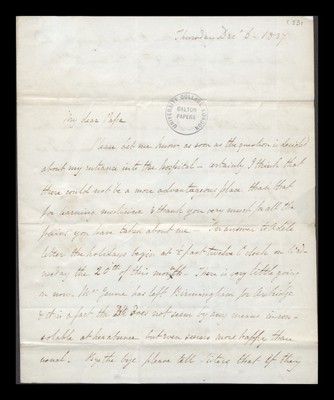 Thursday Decr 5 - 1837
UNIVERSITY COLLEGE LONDON
GALTON
PAPERS
My dear Papa
Please let me know as soon as the question is decided
about my entrance into the hospital - certainly I think that
there could not be a more advantageous place than that
for learning medicine & thank you very much for all the
pains you have taken about me. In answer to
letter the holidays begin at ½ past twelve o'clock on
the 20th of this month. There is very little going
on now. Mr Jeune has left Birmingham for
& it is a fact the does not seem by any means incon-
solable at his absence but even seems more happy than
usual. By the bye please tell Sisters that if they